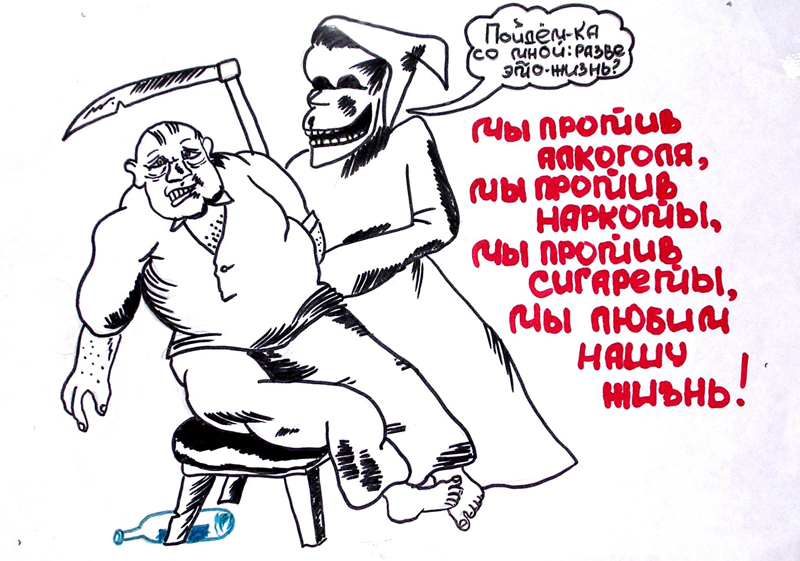 Пойдём-ка
со мной: разве
это-жизнь?
Мы против
алкоголя,
мы против
наркоты,
мы против
сигареты,
мы любим
нашу
жизнь!